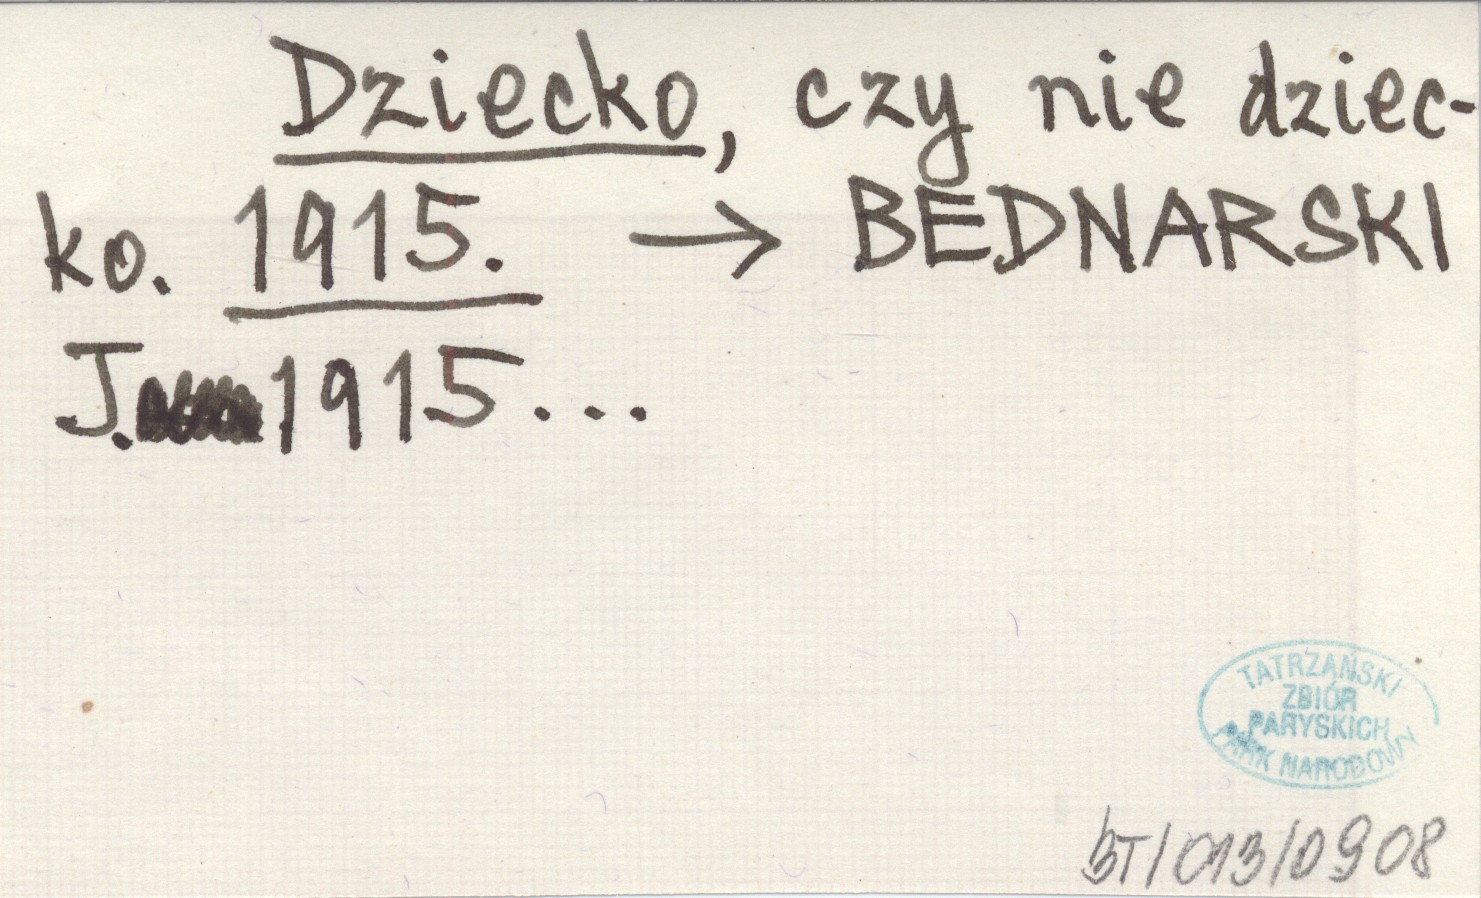 Dziecko, czy nie dziec-
ko. 1915. → BEDNARSKI
J. 1915...
TATRZAŃSKI
ZBIÓR
PARYSKICH
PARK NARODOWY
BT/013/0908